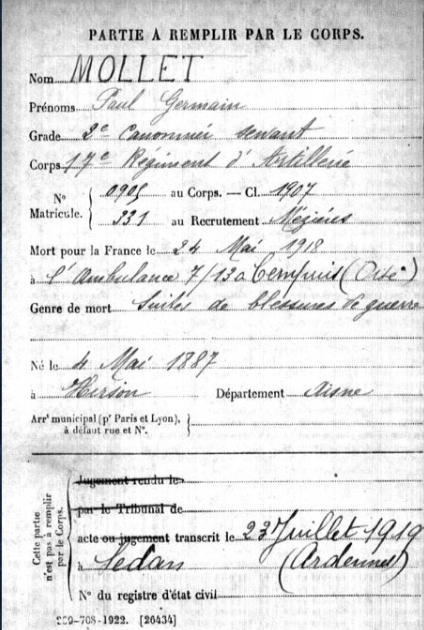 PARTIE À REMPLIR PAR LE CORPS.
Nom MOLLET
Prénoms Paul Germain
Grade 2e Canonnier servant
Corps 17e Régiment d'Artillerie
N° Matricule. { 0905 au Corps. — Cl. 1907
331 au Recrutement Mézières
Mort pour la France le 24 Mai 1918
à l'Ambulance 7/13 à Cempuis (Oise)
Genre de mort Suites de blessures de guerre
Né le 4 Mai 1887
à Hirson Département Aisne
Arrt municipal (pr Paris et Lyon), à défaut rue et N°.
Cette partie n'est pas à remplir par le Corps.
Jugement rendu le
par le Tribunal de
acte ou jugement transcrit le 23 Juillet 1919
à Sedan (Ardennes)
N° du registre d'état civil
-708-1922. [26434]